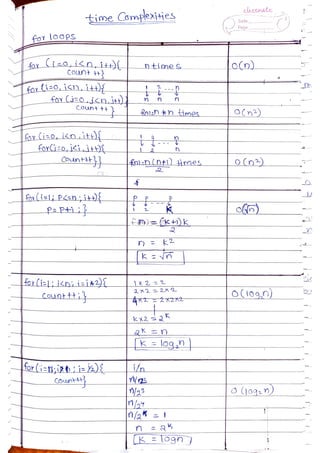 classmate
Date
Page
time Complexities
for loops
for (i=0, i<n, i++){
count++}
n times
O(n)
for (i=0, i<n, i++){
for (j=0, j<n, j++)
count++}
1 2 ... n
n n n
n*n times
O(n²)
for (i=0, i<n, i++){
for(j=0, j<i, j++){
count++}}
1 2 n
1 2 n
n(n+1) times
2
O(n²)
for(i=1; P<=n; i++){
P = P+i ; }
P P P
1 2 K
= (k+1)k
2
n = k²
k = √n
O(√n)
for(i=1; i<n; i=i*2){
count++; }
1×2 = 2
2×2 = 2×2
4×2 = 2×2×2
k×2 = 2k
2k = n
k = log₂n
O(log₂n)
for(i=n; i>1; i=i/2){
count++}
i/n
n/2²
n/2³
n/2⁴
n/2k = 1
n = 2k
k = logn
O (log₂n)